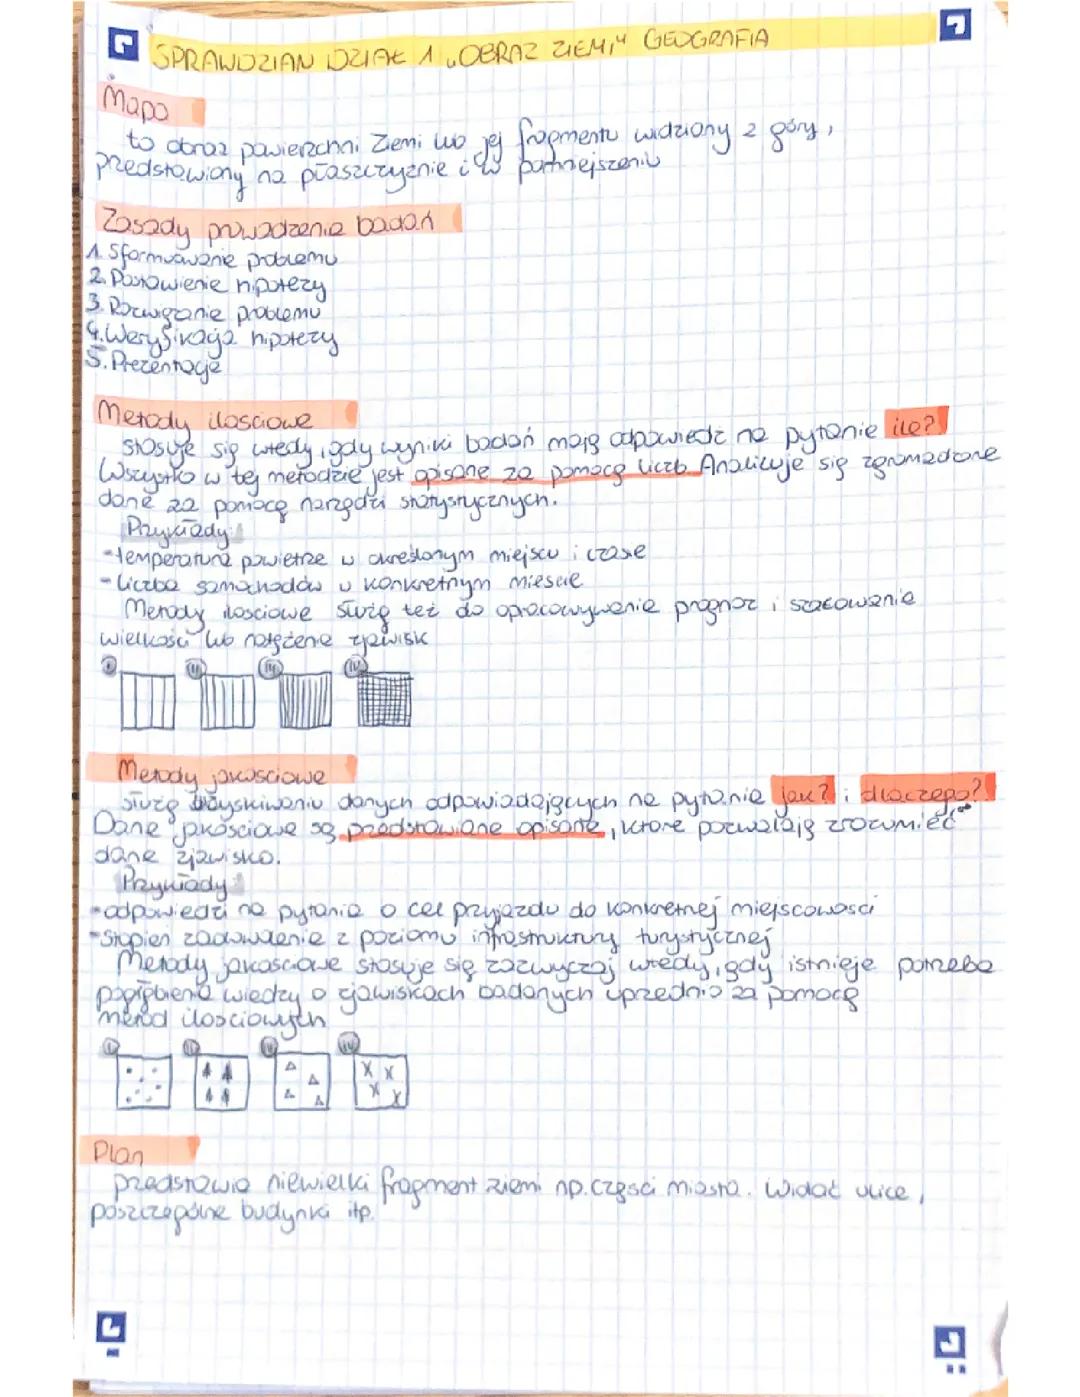 SPRAWDZIAN DZIAŁ 1 „OBRAZ ZIEMI" GEOGRAFIA
Mapa
to obraz powierzchni Ziemi lub jej fragmentu widziany z góry,
przedstawiony na płaszczyźnie i w pomniejszeniu
Zasady prowadzenia badań
1. Sformuowanie problemu
2. Postowienie hipotezy
3. Rozwiązanie problemu
4. Weryfikacja hipotezy
5. Prezentacje
Metody ilosciowe
stosuje się wtedy, gdy wyniki badań mają odpowiedź na pytanie ile?
Wszystko w tej metodzie jest opisane za pomocą liczb. Analizuje się zgromadzone
dane za pomocą narzędzi statystycznych.
Przykłady:
-temperatura powietrza w określonym miejscu i czasie
-liczba samochodów w konkretnym miescie
Metody ilosciowe służą też do opracowywania prognoz i szacowania
wielkości lub natężenia zjawisk
I II III IV
Metody jakosciowe
służą uzyskiwaniu danych odpowiadających na pytania jak? i dlaczego?
Dane jakościowe są przedstawiane opisane, które pozwalają zrozumieć
dane zjawisko.
Przykłady:
-odpowiedzi na pytania o cel przyjazdu do konkretnej miejscowosci
-Stopień zadowolenia z poziomu infrastruktury turystycznej
Metody jakosciowe stosuje się zazwyczaj wtedy, gdy istnieje potrzeba
pogłębienia wiedzy o zjawiskach badanych uprzednio za pomocą
metod ilosciowych
I II III IV
Plan
przedstawia niewielki fragment ziemi np. części miasta. Widać ulice,
poszczególne budynki itp.